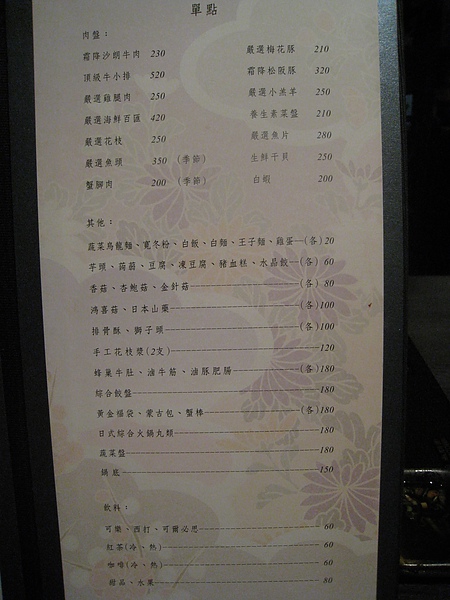 單點
肉盤：
霜降沙朗牛肉 230
頂級牛小排 520
嚴選雞腿肉 250
嚴選海鮮百匯 420
嚴選花枝 250
嚴選魚頭 350 (季節)
蟹腳肉 200 (季節)
嚴選梅花豚 210
霜降松阪豚 320
嚴選小羔羊 250
養生素菜盤 210
嚴選魚片 280
生鮮干貝 250
白蝦 200
其他：
蔬菜烏龍麵、寬冬粉、白飯、白麵、王子麵、雞蛋---(各)20
芋頭、蒟蒻、豆腐、凍豆腐、豬血糕、水晶餃---(各) 60
香菇、杏鮑菇、金針菇---(各) 80
鴻喜菇、日本山藥---(各)100
排骨酥、獅子頭---(各)100
手工花枝漿(2支)---120
蜂巢牛肚、滷牛筋、滷豚肥腸---(各)180
綜合餃盤---180
黃金福袋、蒙古包、蟹棒---(各)180
日式綜合火鍋丸類---180
蔬菜盤---180
鍋底---150
飲料：
可樂、西打、可爾必思---60
紅茶(冷、熱)---60
咖啡(冷、熱)---60
甜品、水果---80